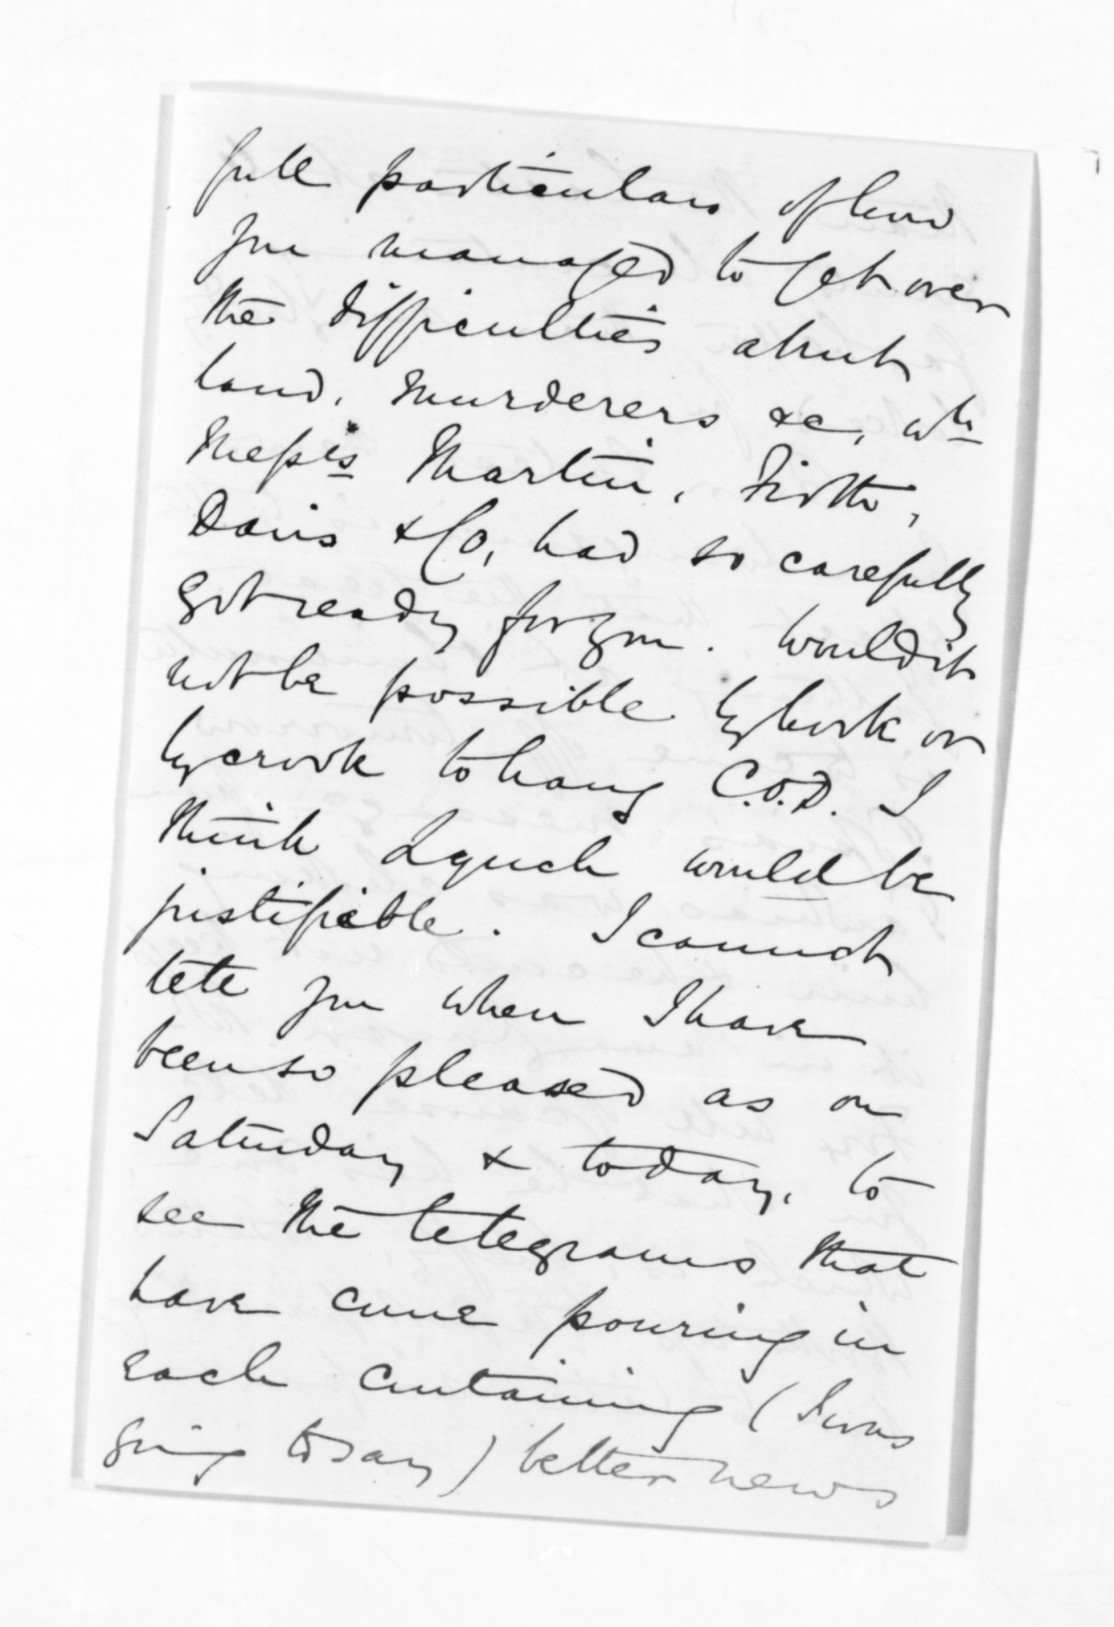 full particulars of how
you managed to get over
the difficulties about
land, murderers &c, wh
Messrs Martin,
Davis & Co, had so carefully
got ready for you. Would it
not be possible by hook or
by crook to hang C.O.D. I
think Lynch would be
justifiable. I cannot
tell you when I have
been so pleased as on
Saturday & today, to
see the telegrams that
have come pouring in
each containing (I was
going to say) better news